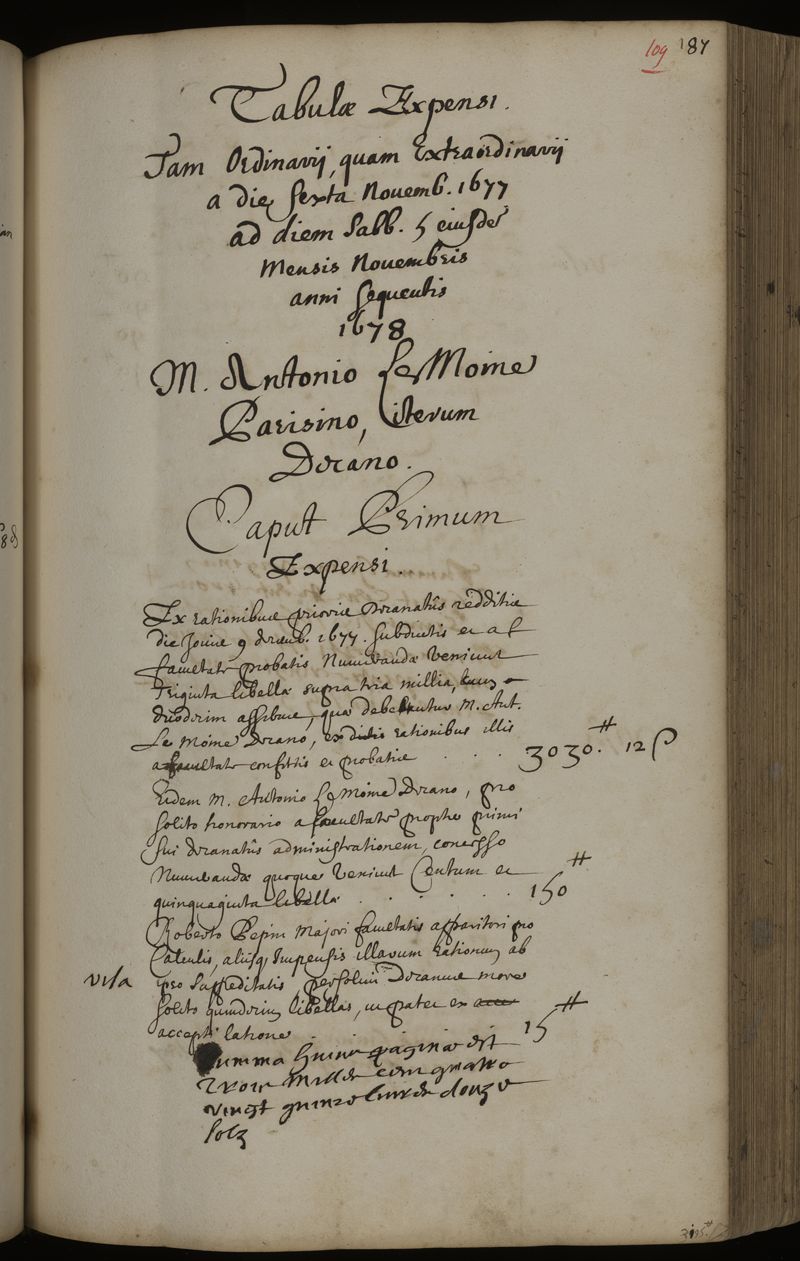 109 187
Tabulæ Expensi.
Tam Ordinarij, quam Extraordinarij
a die sexta Nouemb. 1677
ad diem Sabb. 5 eiusdē
Mensis Nouembris
anni sequentis
1678
M. Antonio Le Moine
Parisino, iterum
Decano.
Caput Primum
Expensi.
Ex rationibus prioris Decanatûs redditis
die Jouis 9 decemb. 1677. subductis et a
facultate probatis Numerandæ veniunt
Triginta libellæ supra tria millia, cum
duodecim assibus, quæ debebantur M. Ant.
Le Moine Decano, ex dictis rationibus illis
a facultate confectis et probatis . . . 3030.# 12 ſ
Eidem M. Antonio Le Moine Decano, pro
solito honorario a facultate propter primi
sui decanatûs administrationem, concesso
Numerandæ quoque veniunt Centum et
quinquaginta libellæ . . . . . . 150 #
Roberto Pepin Majori facultatis apparitori pro
Calculis, aliisq; Impensis illarum rationum ab
visa ipso suppeditatis, persoluit Decanus more
solito quindecim libellas, ut patet ex
accepti latione . 15 #
Summa huius paginæ est
Trois Mille cent quatre
vingt quinze liures douze
solz
3195.#